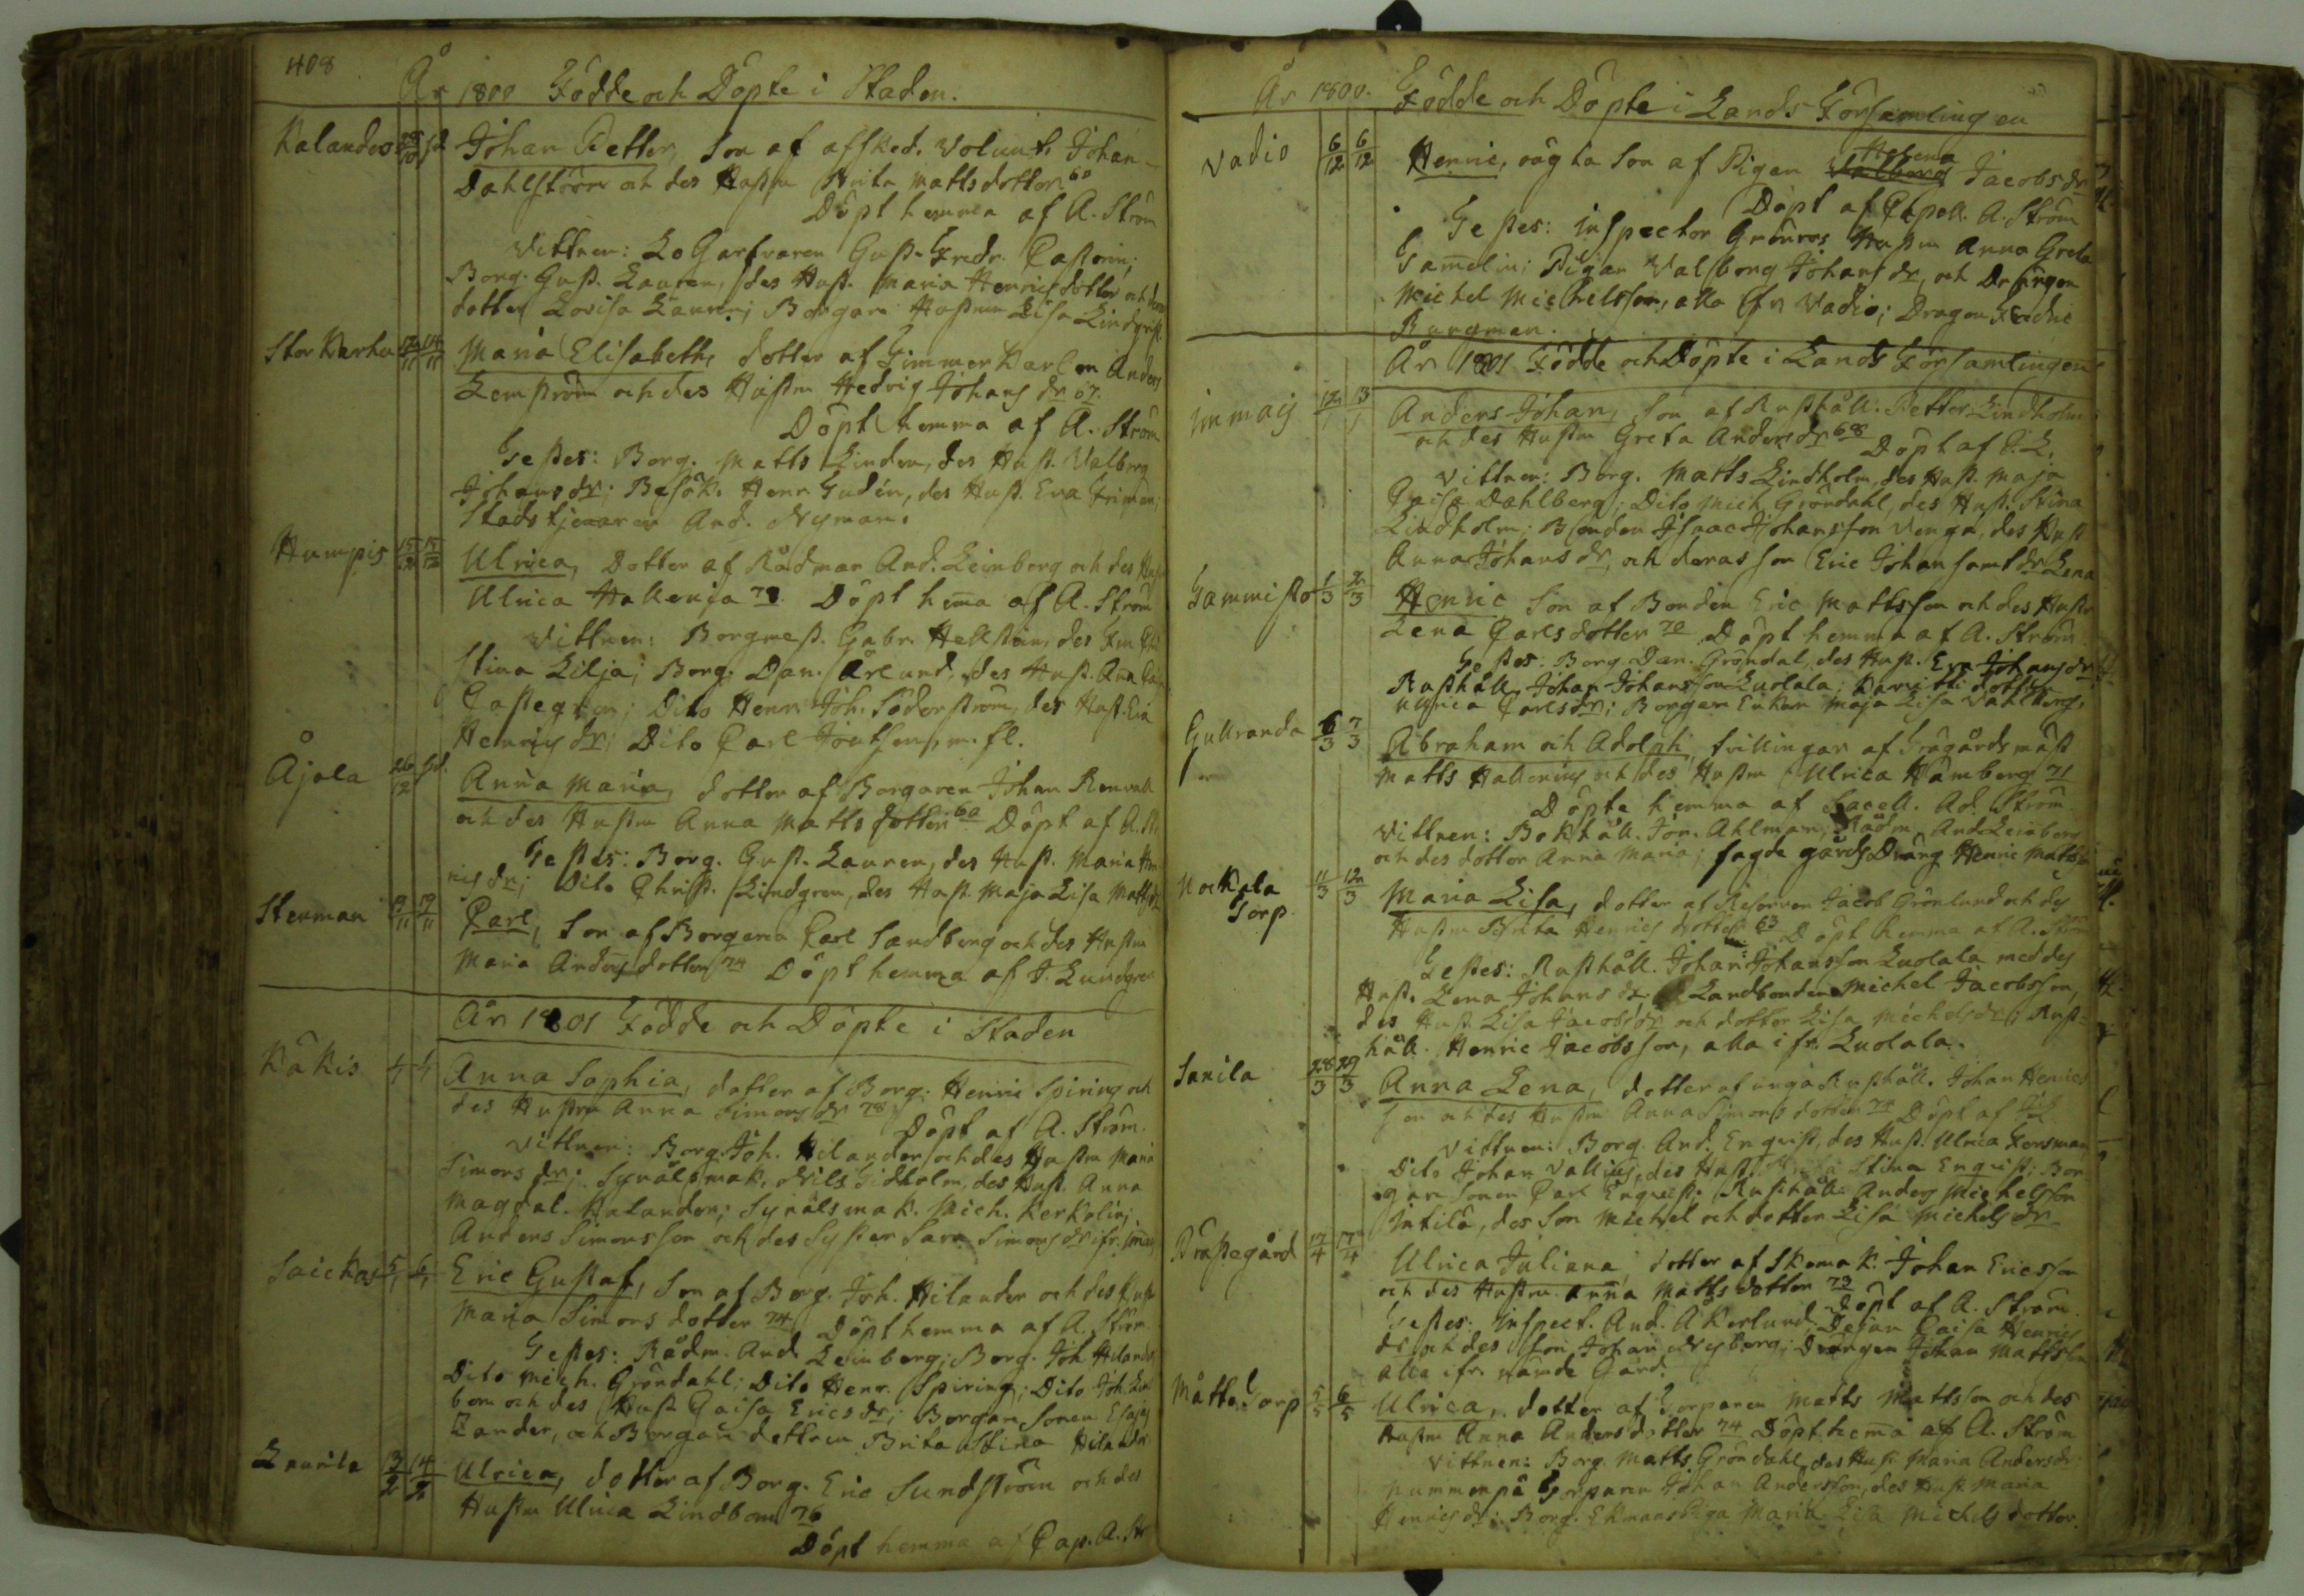 408
År 1800 Födde och Döpte i Staden.
Kalandes 29/10 sd. Johan Petter, Son af afsked. Volunt. Johan
Dahlström och des Hustru Brita Mattsdotter 60
Döpt hemma af A. Ström
Vittnen: LoGarfvaren Gust. Fredr. Castorin;
Borg. Gust. Lauren, des Hust. Maria Henricsdotter och
dotter Lovisa Lauren; Borgare Hustrun Lisa Lindqvist.
Stor Karhu 12/11 14/11 Maria Elisabeth, dotter af Timmer Karlen Anders
Lemström och des Hustru Hedvig Johans dr 67.
Döpt hemma af A. Ström
Testes: Borg. Matts Linden, des Hust. Valborg
Johansdr; Besök. Henr. Gudén, des Hust. Eva Friman;
Stadstjenaren And. Nyman.
Humpis 15/12 15/12 Ulrica, Dotter af Rådman And. Leinberg och des Hustru
Ulrica Hallenia 73. Döpt hema af A. Ström
Vittnen: Borgmest. Gabr. Hellsten, des Fru
Stina Lilja; Borg. Dan. Arelund, des Hust. Ana
Castegren; Dito Henr. Joh. Söderström, des Hust. Eva
Henrics dr; Dito Carl Joutsen, m. fl.
Äjälä 26/12 sd. Anna Maria, dotter af Borgaren Johan Renvall
och des Hustru Anna Matts dotter 60 Döpt af A. St.
Testes: Borg. Gust. Lauren, des Hust. Maria Hen
rics dr; Dito Christ. Lindgren, des Hust. Maja Lisa Mattsdr
Stenman 19/11 19/11 Carl, Son af Borgaren Carl Sandberg och des Hustru
Maria Anders dotter 74 Döpt hemma af J. Lundgren
År 1801 Födde och Döpte i Staden
Kåkis Anna Sophia, dotter af Borg. Henric Spiring och
des Hustru Anna Simons dr 78
Döpt af A. Ström.
Vittnen: Borg. Joh. Hilander och des Hustru Maria
Simons dr; Synålsmak. Nils Gidholm, des Hust. Anna
Magdal. Kalander; Synålsmak. Mich. Kerkolin;
Anders Simonsson och des Syster Sara Simons dr ifr.
Saickas 5/1 6/1 Eric Gustaf, Son af Borg. Joh. Hilander och des Hustru
Maria Simons dotter 74 Döpt hemma af A. Ström
Testes: Rådm. And. Leinberg; Borg. Joh. Hilander,
Dito Mich. Gröndahl; Dito Henr. Spiring; Dito Joh. Lind
bom och des Hust. Caisa Erics dr; Borgare Sonen Esajas
Zander, och Borgare dottren Brita Stina Hilander
Laurila 13/2 14/2 Ulrica, dotter af Borg. Eric Sundström och des
Hustru Ulrica Lindbom 76
Döpt hemma af Cap. A. Str
År 1800. Födde och Döpte i Lands Församlingen
Vadio 6/12 6/12 Henric, oägta Son af Pigan Helena Jacobs dr
Döpt af Capell. A. Ström
Testes: Inspector Grönros Hustru Anna Greta
Gamelin; Pigan Valborg Johans dr, och Drängen
Michel Michelsson, alla fr. Vadio; Dragon Fredric
Bergman.
År 1801 Födde och Döpte i Lands Församlingen
Immais 12/1 13/1 Anders Johan, Son af Rusthåll. Petter Lindholm
och des Hustru Greta Anders dr 68 Döpt af J. L.
Vittnen: Borg. Matts Lindholm, des Hust. Maja
Caisa Dahlberg; Dito Mich. Gröndahl, des Hust. Stina
Lindholm; Bonden Isaac Johansson Venga, des Hust
Anna Johans dr, och deras son Eric Johan samt dr Lena
Tammisto 1/3 2/3 Henric Son af Bonden Eric Mattsson och des Hustru
Lena Carlsdotter 70 Döpt hemma af A. Ström
Testes: Borg. Dan. Gröndal, des Hust. Eva Johans dr
Rusthåll. Johan Johansson Luolala;
Ulrica Carlsdr; Borgare Enkan Maja Lisa Vahlberg.
Gullranda 6/3 7/3 Abraham och Adolph, tvillingar af Trägårdsmäst
Matts Hallenius och des Hustru Ulrica Hamberg 71
Döpte hemma af Sacell. Ad. Ström
Vittnen: Bokhåll. Jör. Ahlman, Rådm. And. Leinberg
och des dotter Anna Maria; sagde gårds Dräng Henric Matts
Nockala Torp. 11/3 12/3 Maria Lisa, dotter af Reserven Jacob Grönlund och des
Hustru Brita Henrics dotter 63 Döpt hemma af A. Ström
Testes: Rusthåll. Johan Johansson Luolala med des
Hust. Lena Johans dr; Landbonden Michel Jacobsson,
des Hust. Lisa Jacobs dr och dotter Lisa Michels dr; Rust-
håll. Henric Jacobsson, alla ifr. Luolala.
Sarila 28/3 29/3 Anna Lena, dotter af unga Rusthåll. Johan Henrics
son och des Hustru Anna Simons dotter 74 Döpt af
Vittnen: Borg. And. Enqvist, des Hust. Ulrica Forsman
Dito Johan Vallius, des Hust. Stina Enqvist; Bor
gare Sonen Carl Enqvist; Rusthåll. Anders Michelsson
Intilä, des Son Michel och dotter Lisa Michels dr
Prästegård 17/4 17/4 Ulrica Juliana, dotter af Skomak. Johan Ericsson
och des Hustru Anna Matts dotter 73 Döpt af A. Ström.
Testes: Inspect. And. Åkerlund; Dejan Caisa Henrics
dr och des son Johan Nyberg; Drängen Johan Mattsson
alla ifr. nämde Gård.
Mått. Torp 5/5 6/5 Ulrica, dotter af Torparen Matts Mattsson och des
Hustru Anna Anders dotter 74 Döpt hema af A. Ström
Vittnen: Borg. Matts Gröndahl, des Hust. Maria Anders dr
Torparen Johan Andersson, des Hust. Maria
Henrics dr; Borg. Ekmans Piga Maria Lisa Michels dotter.